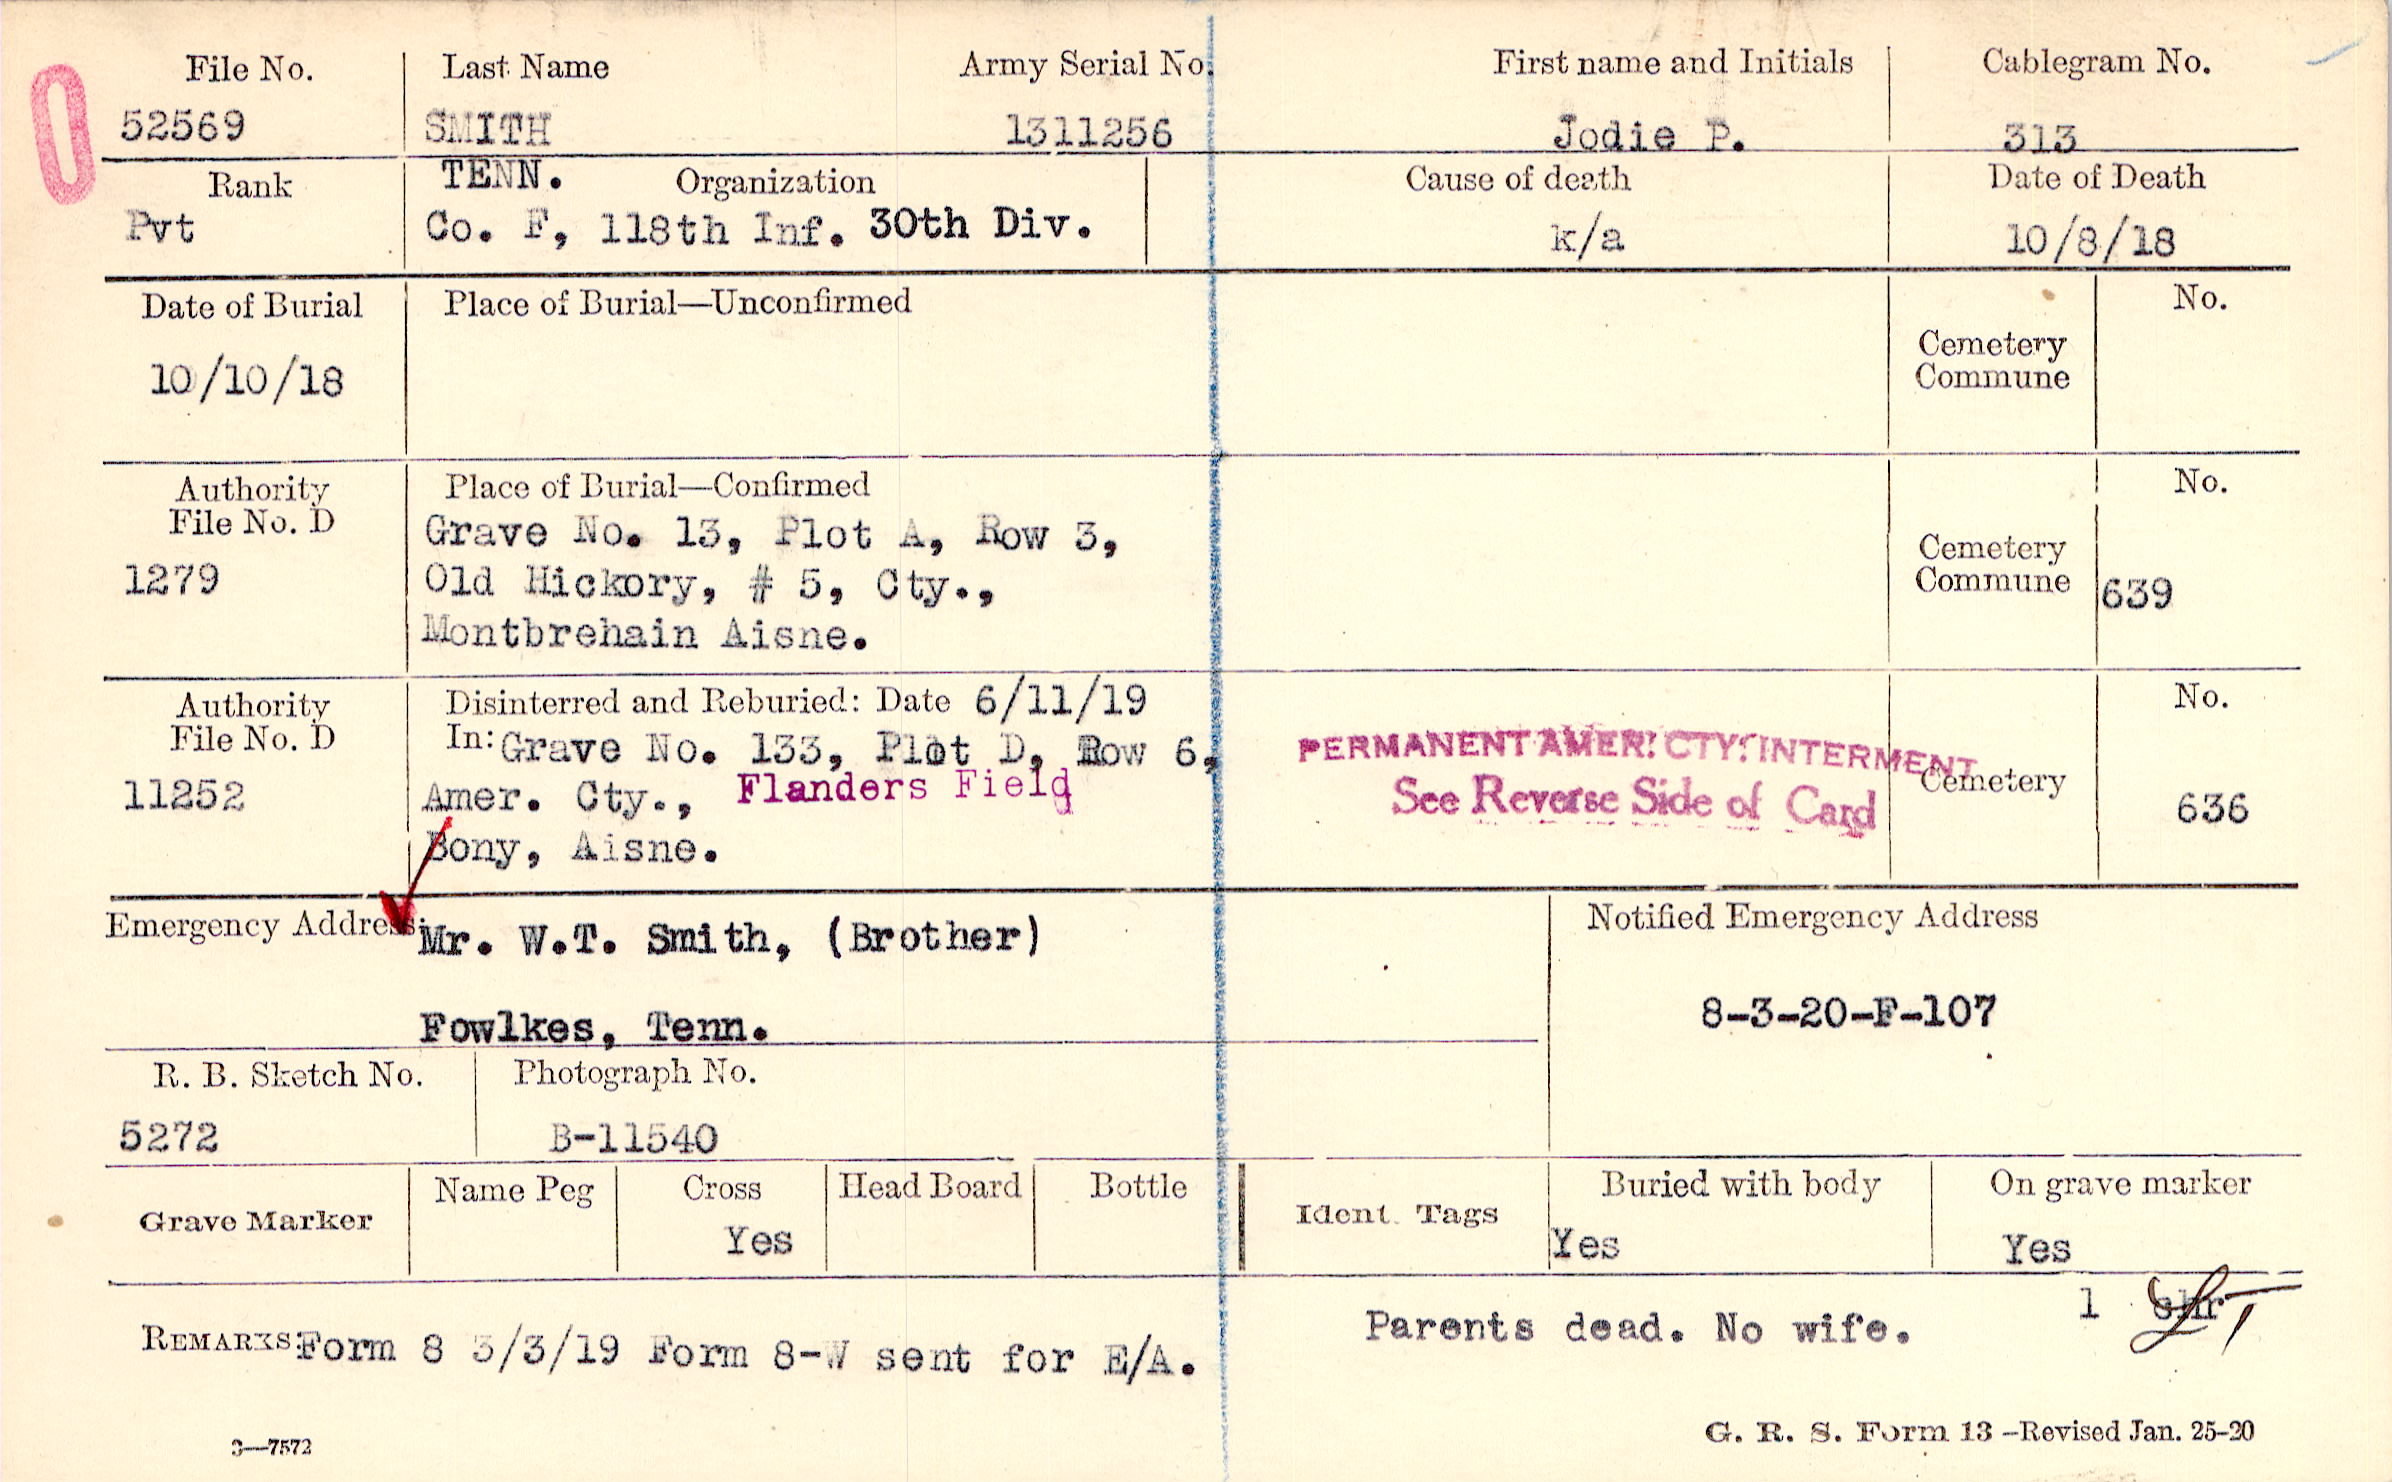 File No. Last Name Army Serial No. First name and Initials Cablegram No.
52569 SMITH 1311256 Jodie P. 313
Rank TENN. Organization Cause of death Date of Death
Pvt Co. F, 118th Inf. 30th Div. k/a 10/8/18
Date of Burial Place of Burial—Unconfirmed No.
10/10/18 Cemetery
Commune
Authority Place of Burial—Confirmed No.
File No. D Grave No. 13, Plot A, Row 3, Cemetery
1279 Old Hickory, # 5, Cty., Commune 639
Montbrehain Aisne.
Authority Disinterred and Reburied: Date 6/11/19 No.
File No. D In: Grave No. 133, Plot D, Row 6, PERMANENT AMER. CTY. INTERMENT
11252 Amer. Cty., Flanders Field See Reverse Side of Card Cemetery 636
Bony, Aisne.
Emergency Address: Mr. W.T. Smith, (Brother) Notified Emergency Address
Fowlkes, Tenn. 8-3-20-F-107
R. B. Sketch No. Photograph No.
5272 B-11540
Grave Marker Name Peg Cross Head Board Bottle Ident. Tags Buried with body On grave marker
Yes Yes Yes
REMARKS: Form 8 3/3/19 Form 8-W sent for E/A. Parents dead. No wife. 1
3—7572 G. R. S. Form 13 —Revised Jan. 25-20